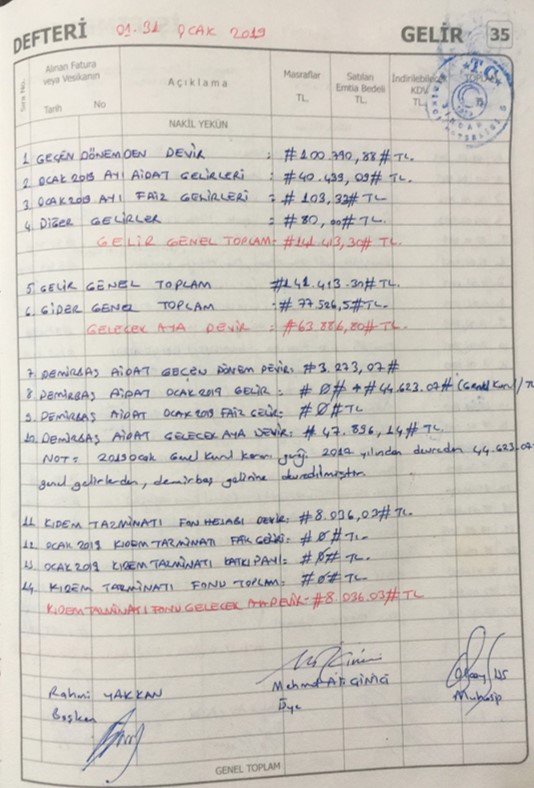 DEFTERİ 01-31 OCAK 2019 GELİR 35
Sıra No.
Alınan Fatura
veya Vesikanın
Tarih No
Açıklama
Masraflar
TL.
Satılan
Emtia Bedeli
TL.
İndirilebilecek
KDV
TL.
T.C.
NAKİL YEKÜN
1. GEÇEN DÖNEMDEN DEVİR : #100.790,88# TL.
2. OCAK 2019 AYI AİDAT GELİRLERİ : #40.439,09# TL.
3. OCAK 2019 AYI FAİZ GELİRLERİ : #103,33# TL
4. DİĞER GELİRLER : #80,00# TL.
GELİR GENEL TOPLAM: #141.413,30# TL.
5. GELİR GENEL TOPLAM #141.413.30# TL.
6. GİDER GENEL TOPLAM : #77.526,5# TL.
GELECEK AYA DEVİR : #63.886,80# TL.
7. DEMİRBAŞ AİDAT GEÇEN DÖNEM DEVİR: #3.273,07#
8. DEMİRBAŞ AİDAT OCAK 2019 GELİR : #0# + #44.623.07# (Genel Kurul) TL
9. DEMİRBAŞ AİDAT OCAK 2019 FAİZ GELİR: #0# TL
10. DEMİRBAŞ AİDAT GELECEK AYA DEVİR: #47.896,14# TL.
NOT: 2019 Ocak Genel Kurul Kararı gereği 2017 yılından devreden 44.623.07
genel gelirlerden, demirbaş gelirine devredilmiştir.
11. KIDEM TAZMİNATI FON HESABI DEVİR: #8.036,03# TL.
12. OCAK 2019 KIDEM TAZMİNATI FAİZ GELİRİ: #0# TL.
13. OCAK 2019 KIDEM TAZMİNATI KATKI PAYI: #0# TL.
14. KIDEM TAZMİNATI FONU TOPLAM: #0# TL.
KIDEM TAZMİNATI FONU GELECEK AYA DEVİR: #8.036.03# TL
Rahmi YAKKAN
Başkan
Mehmet Ali GİNİCİ
Üye
Muhasip
GENEL TOPLAM